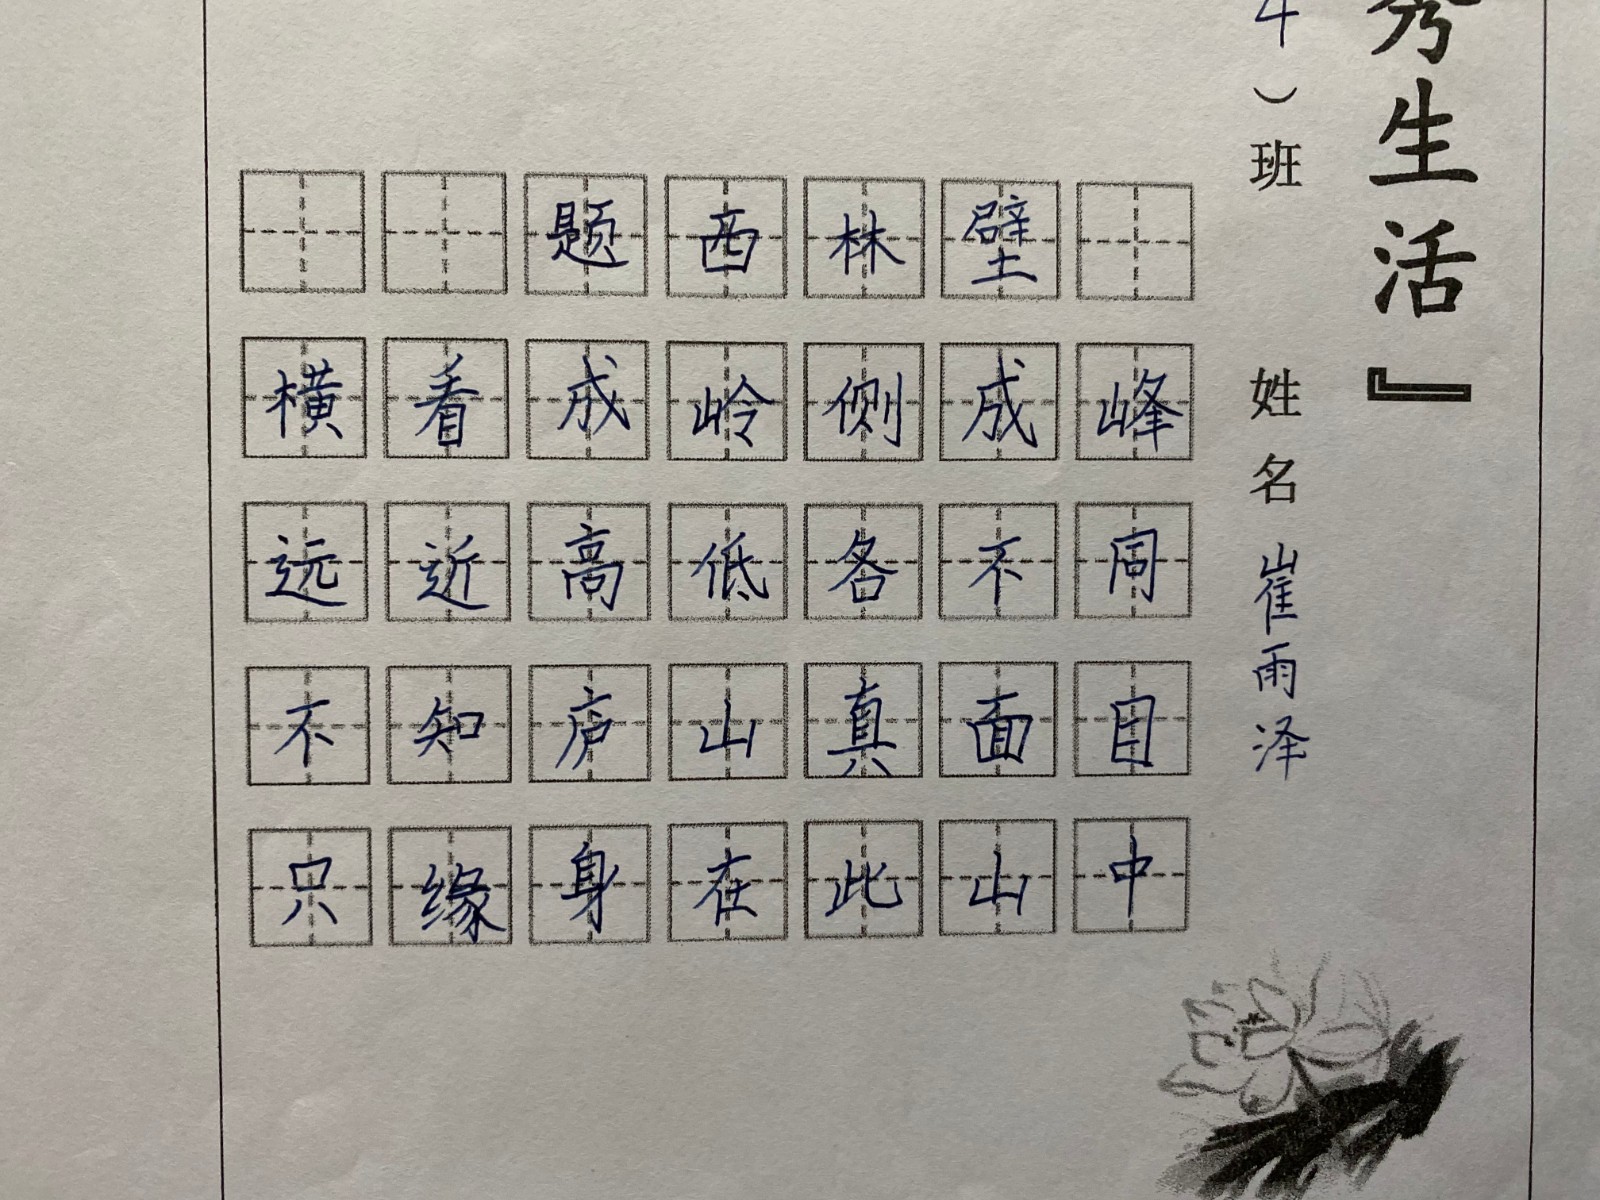 秀生活』
4）班 姓名 崔雨泽
题西林壁
横看成岭侧成峰
远近高低各不同
不知庐山真面目
只缘身在此山中